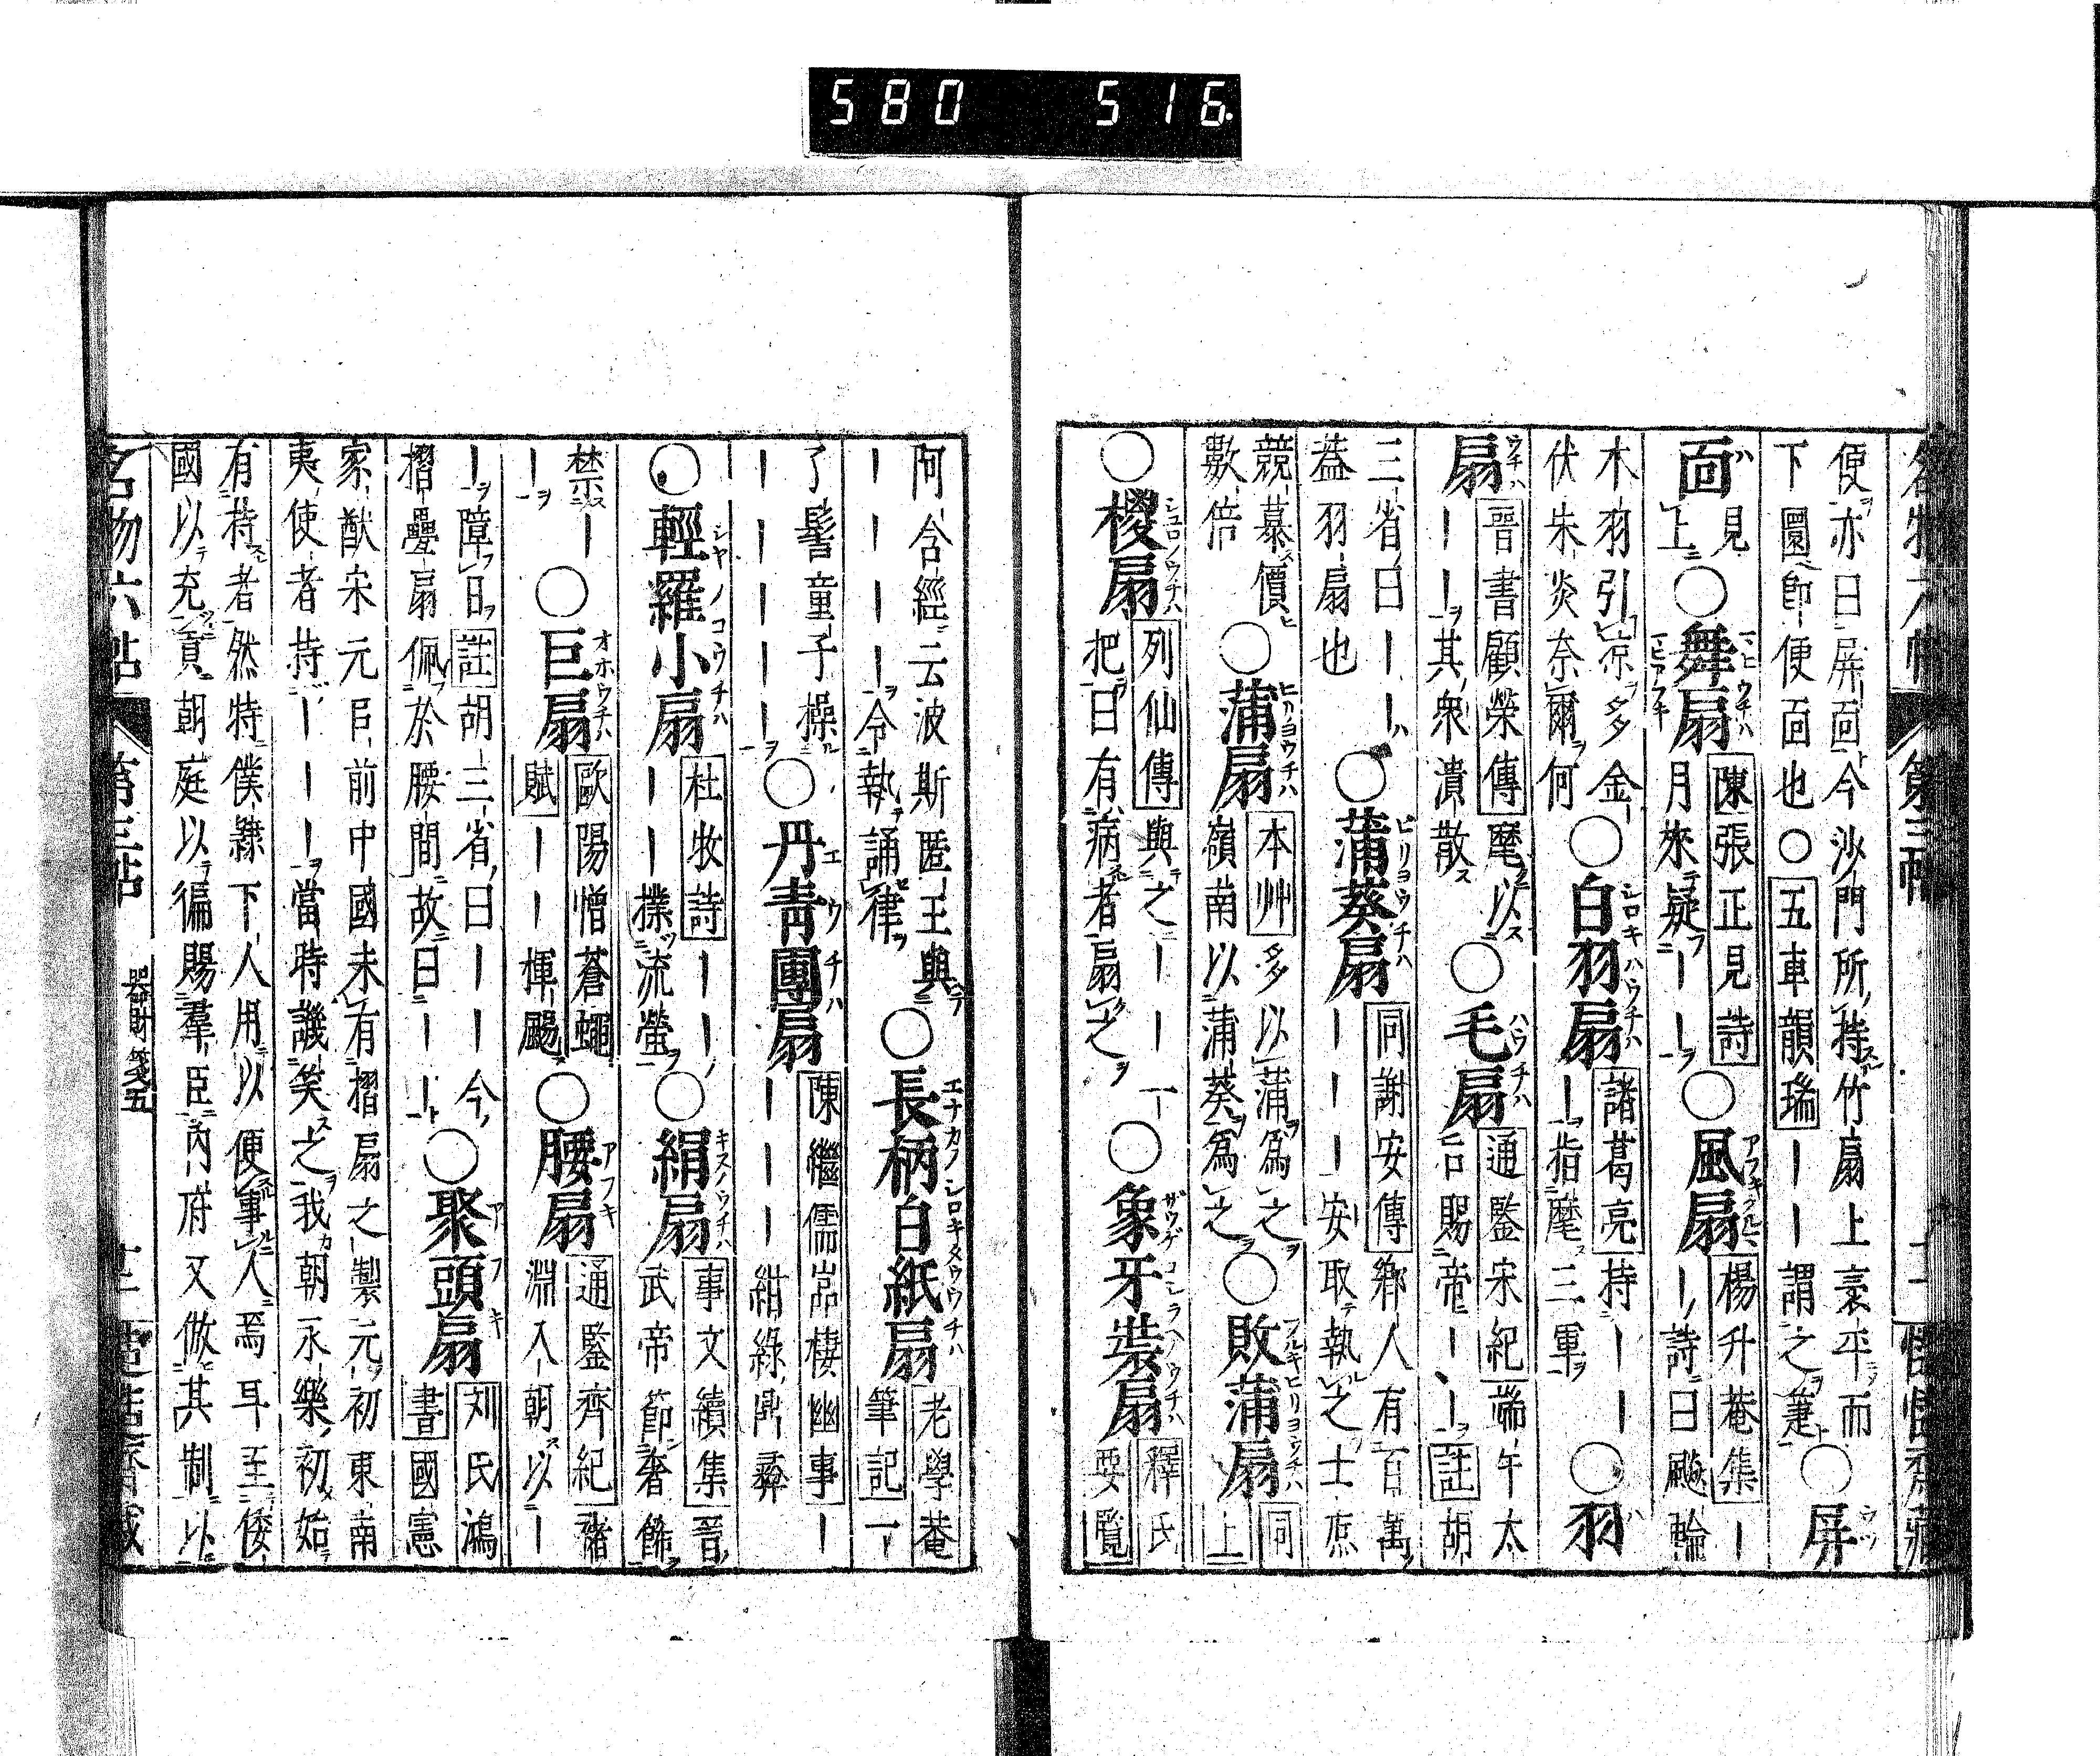 580 516
便亦曰屏面今沙門所持竹扇上袤平而
下圜即便面也○五車韻瑞｜｜謂之箑○屏
面見上○舞扇陳張正見詩月來疑｜｜○風扇楊升菴集｜｜詩曰飈輪
木羽引涼多金伏朱炎奈爾何○白羽扇諸葛亮持｜｜｜指麾三軍○羽
扇晉書顧榮傳麾以｜｜其衆潰散○毛扇通鑑宋紀端午太后賜帝｜｜註胡
三省曰｜｜蓋羽扇也○蒲葵扇同謝安傳鄉人有｜｜｜｜百萬安取執之士庶
競慕價數倍○蒲扇本艸多以蒲爲之嶺南以蒲葵爲之○敗蒲扇同上
○椶扇列仙傳與之｜｜一把曰有病者扇之○象牙裝扇釋氏要覽
阿含經云波斯匿王與｜｜｜｜令執誦律○長柄白紙扇老學菴筆記一
了髻童子操｜｜｜｜｜○丹青團扇陳繼儒嵓棲幽事｜｜｜｜紺綠鼎彝
○輕羅小扇杜牧詩｜｜｜｜撲流螢○絹扇事文續集晉武帝節奢飾
禁｜｜○巨扇歐陽憎蒼蠅賦｜｜揮颺○腰扇通鑑齊紀褚淵入朝以｜
｜障日註胡三省曰｜｜今摺疊扇佩於腰間故曰｜｜○聚頭扇刘氏鴻書國憲
家猷宋元已前中國未有摺扇之製元初東南
夷使者持｜｜｜當時譏笑之我朝永樂初始
有持者然特僕隸下人用以便事人焉耳至倭
國以充貢朝庭以徧賜羣臣內府又倣其制以
名物六帖 第三帖 器財箋五